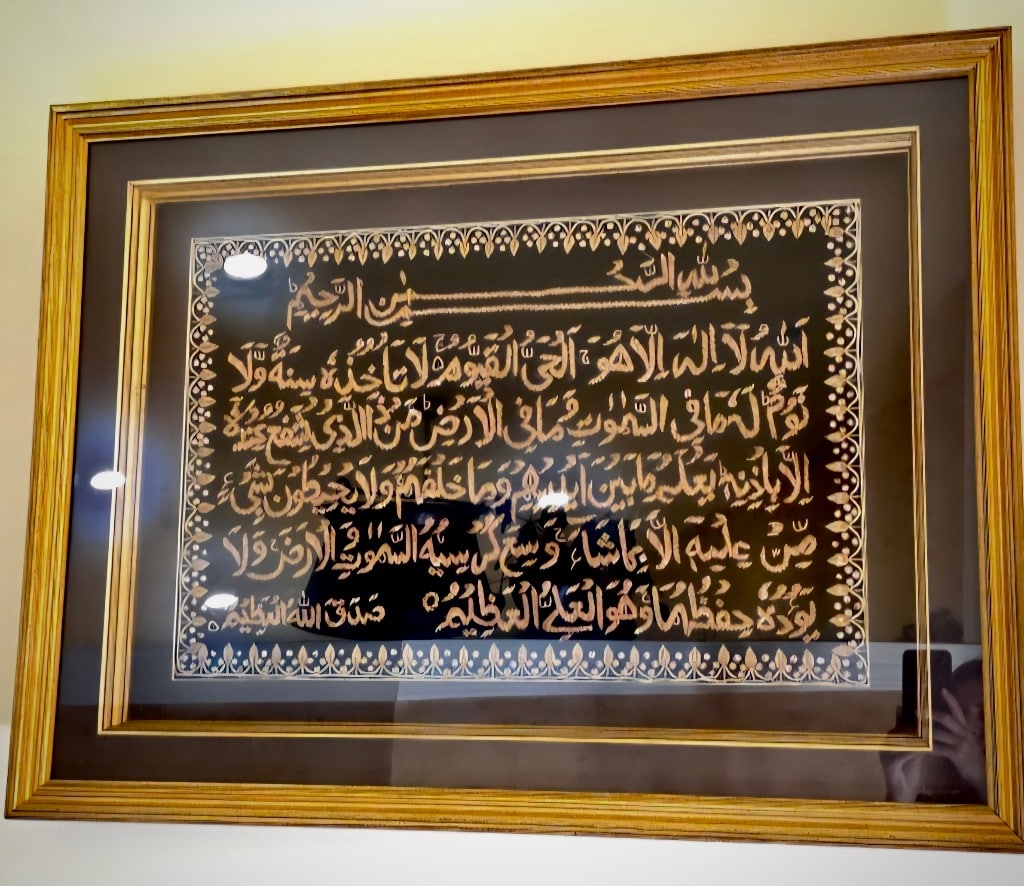 بِسْمِ اللهِ الرَّحْمٰنِ الرَّحِيْمِ
اَللهُ لَآ اِلٰهَ اِلَّا هُوَ ۚ اَلْحَىُّ الْقَيُّوْمُ ۚ لَا تَاْخُذُهٗ سِنَةٌ وَّلَا
نَوْمٌ ؕ لَهٗ مَا فِى السَّمٰوٰتِ وَمَا فِى الْاَرْضِ ؕ مَنْ ذَا الَّذِىْ يَشْفَعُ عِنْدَهٗ
اِلَّا بِاِذْنِهٖ ؕ يَعْلَمُ مَا بَيْنَ اَيْدِيْهِمْ وَمَا خَلْفَهُمْ وَلَا يُحِيْطُوْنَ بِشَىْءٍ
مِّنْ عِلْمِهٖٓ اِلَّا بِمَا شَآءَ ۚ وَسِعَ كُرْسِيُّهُ السَّمٰوٰتِ وَالْاَرْضَ ۚ وَلَا
يَـُٔوْدُهٗ حِفْظُهُمَا ۚ وَهُوَ الْعَلِىُّ الْعَظِيْمُ ○ صَدَقَ اللهُ الْعَظِيْمُ